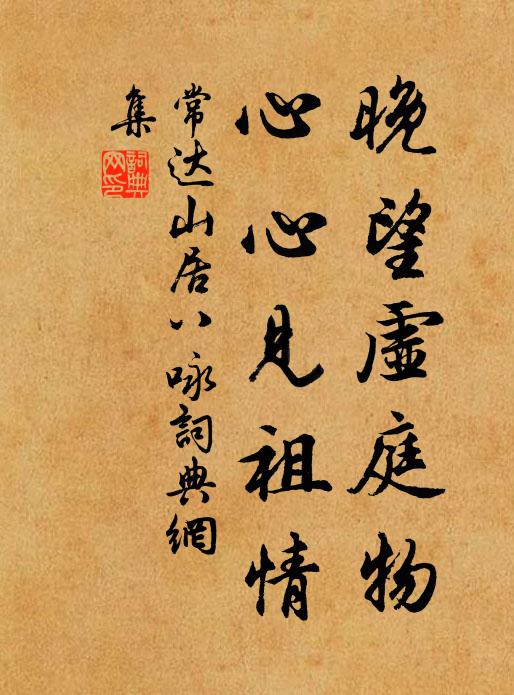 晚望虛庭物
心心見祖情
常达山居八咏詞典網
集
詞典
网印